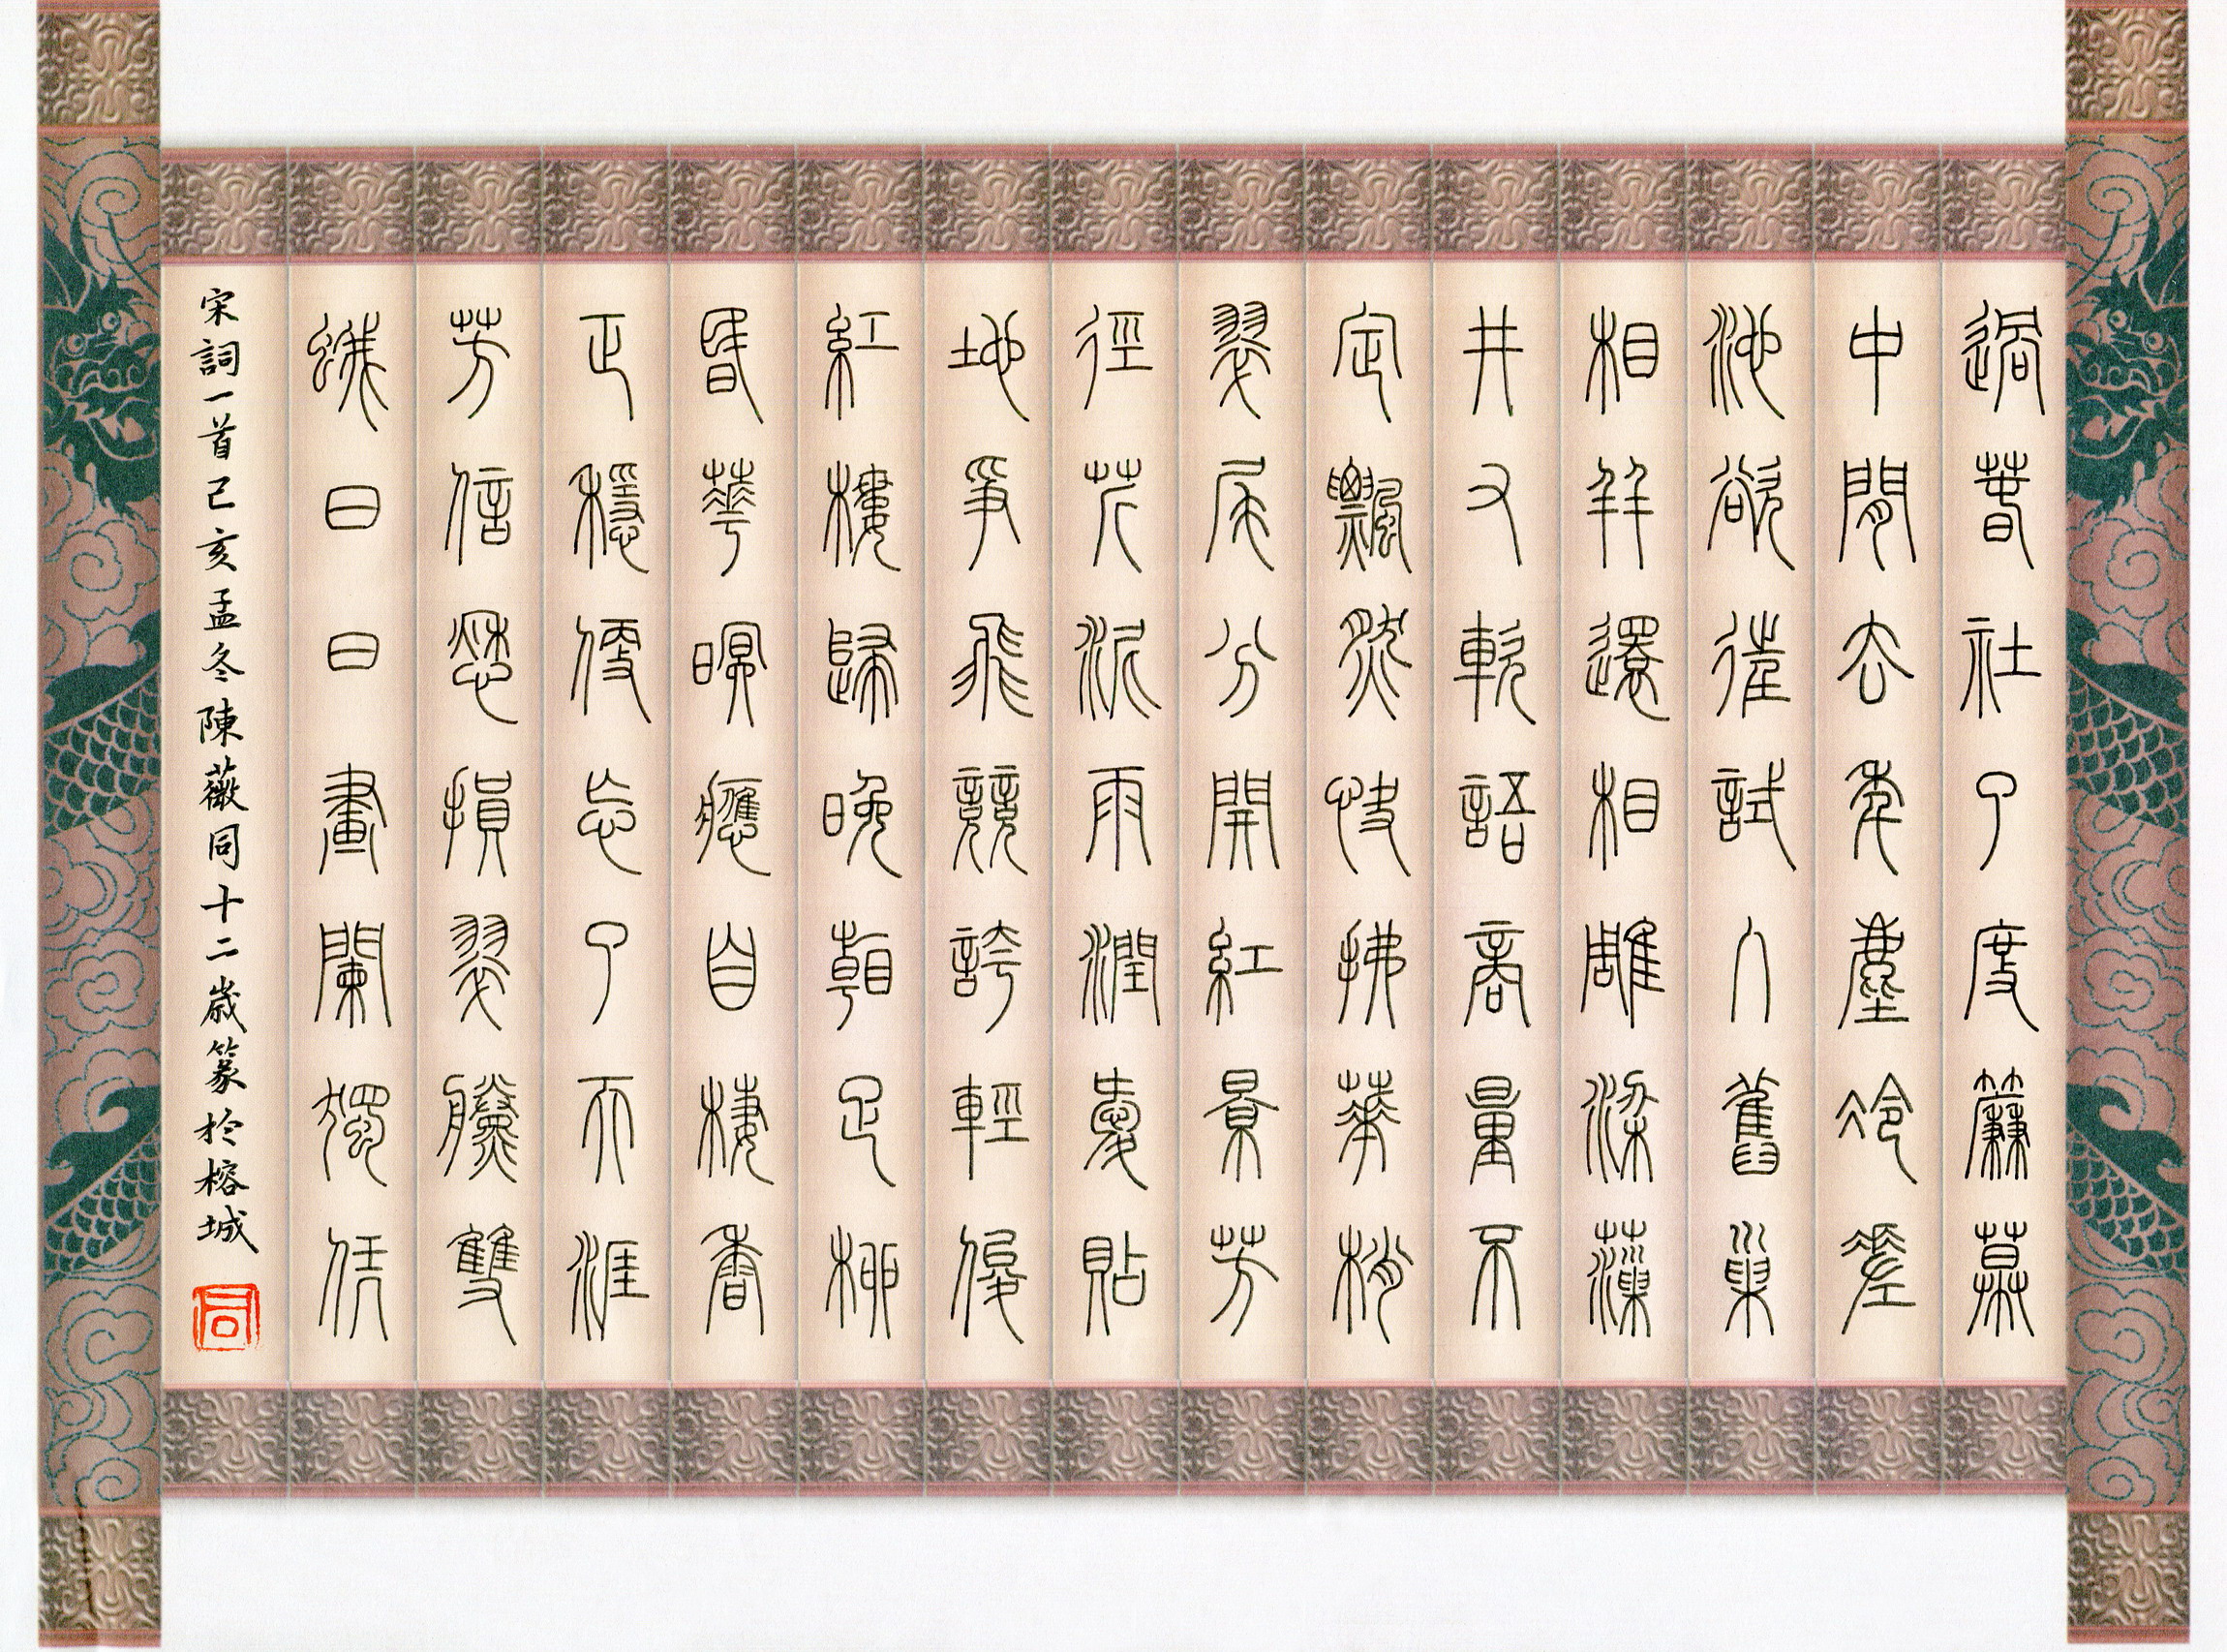 過春社了度簾幕
中間去年塵冷差
池欲往試入舊巢
相並還相雕梁藻
井又軟語商量不
定飄然快拂華梢
翠尾分開紅景芳
徑芹泥雨潤愛貼
地爭飛競誇輕俊
紅樓歸晚看足柳
昏華暝應自棲香
正穩便忘了天涯
芳信愁損翠黛雙
蛾日日畫闌獨凭
宋詞一首己亥孟冬陳薇同十二歲篆於榕城
同